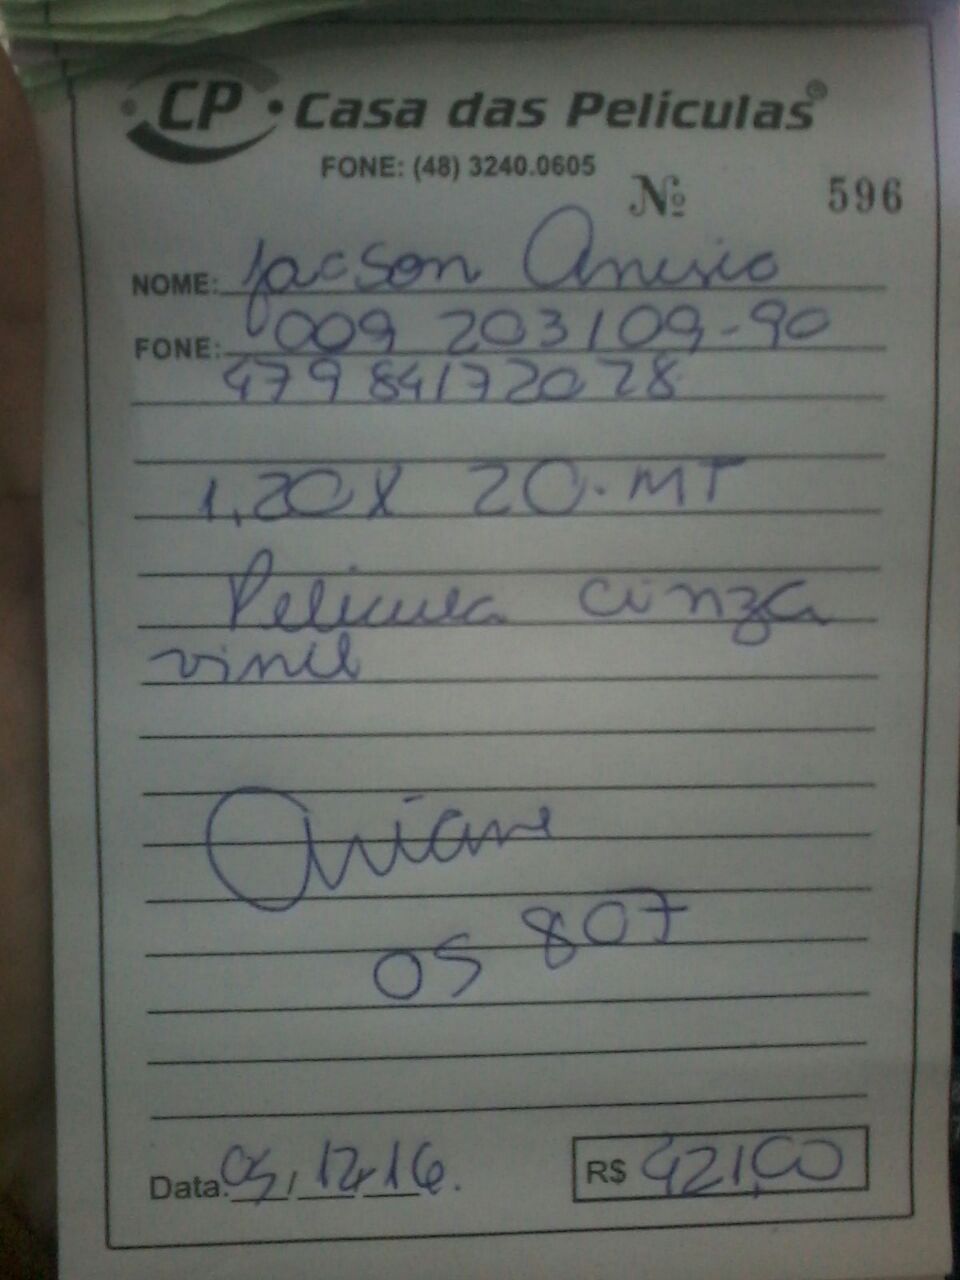 CP Casa das Películas®
FONE: (48) 3240.0605
Nº 596
NOME: Jacson Anisio
FONE: 009 203109-90
479 84172028
1,20X 20.MT
Pelicula cinza
vinil
Ariane
OS 807
Data: 05/12/16. R$ 421,00